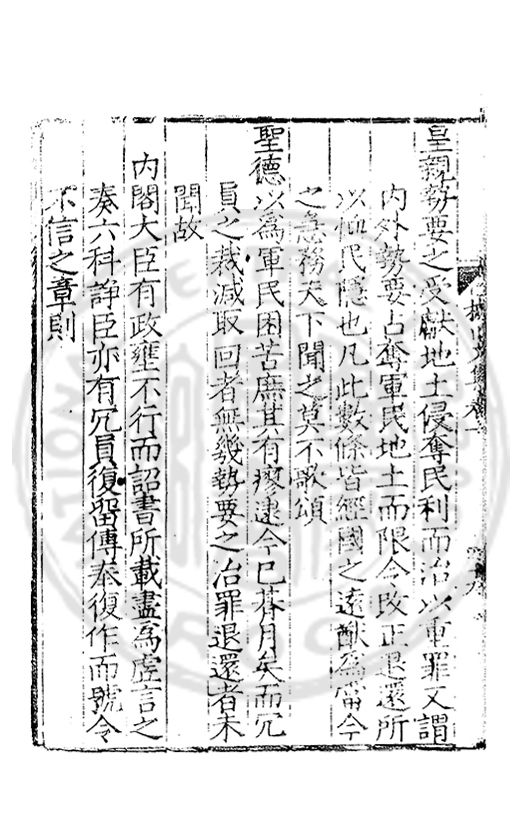 皇親勢要之受獻地土侵奪民利而治以重罪又謂
内外勢要占奪軍民地土而限令改正退還所
以恤民隱也凡此數條皆經國之遠猷為當今
之急務天下聞之莫不歌頌
聖德以為軍民困苦庶其有瘳逮今已朞月矣而冗
員之裁減取回者無幾勢要之治罪退還者未
聞故
内閣大臣有政壅不行而詔書所載盡為虛言之
奏六科諍臣亦有冗員復留傳奉復作而號令
不信之章則